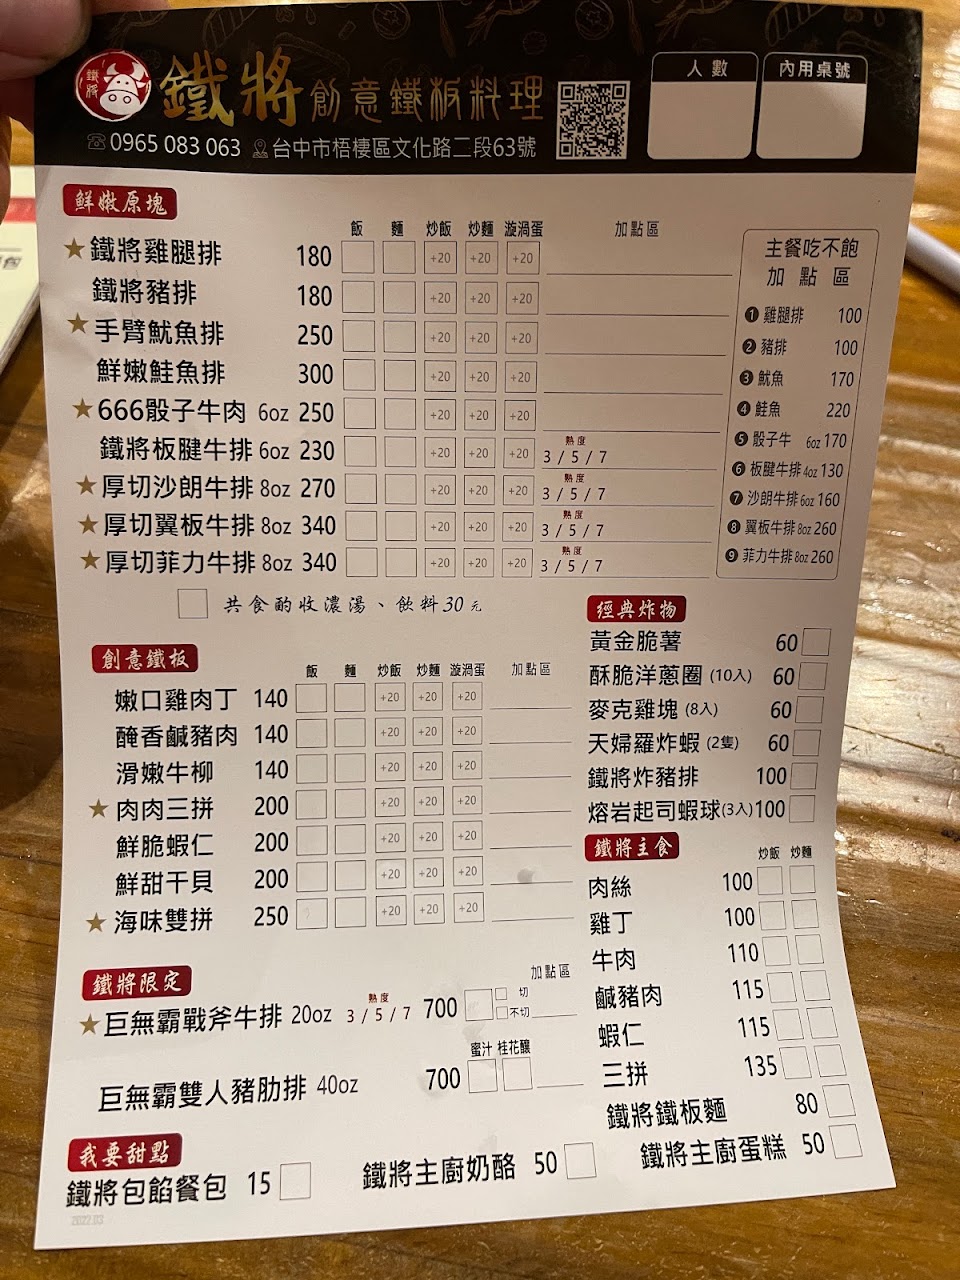 鐵將
鐵將 創意鐵板料理
0965 083 063 台中市梧棲區文化路二段63號
人數
內用桌號
鮮嫩原塊
飯 麵 炒飯 炒麵 漩渦蛋 加點區
★鐵將雞腿排 180 +20 +20 +20
鐵將豬排 180 +20 +20 +20
★手臂魷魚排 250 +20 +20 +20
鮮嫩鮭魚排 300 +20 +20 +20
★666骰子牛肉 6oz 250 +20 +20 +20
鐵將板腱牛排 6oz 230 +20 +20 +20 熟度 3 / 5 / 7
★厚切沙朗牛排 8oz 270 +20 +20 +20 熟度 3 / 5 / 7
★厚切翼板牛排 8oz 340 +20 +20 +20 熟度 3 / 5 / 7
★厚切菲力牛排 8oz 340 +20 +20 +20 熟度 3 / 5 / 7
共食酌收濃湯、飲料30元
主餐吃不飽
加點區
❶雞腿排 100
❷豬排 100
❸魷魚 170
❹鮭魚 220
❺骰子牛 6oz 170
❻板腱牛排 4oz 130
❼沙朗牛排 6oz 160
❽翼板牛排 8oz 260
❾菲力牛排 8oz 260
創意鐵板
飯 麵 炒飯 炒麵 漩渦蛋 加點區
嫩口雞肉丁 140 +20 +20 +20
醃香鹹豬肉 140 +20 +20 +20
滑嫩牛柳 140 +20 +20 +20
★肉肉三拼 200 +20 +20 +20
鮮脆蝦仁 200 +20 +20 +20
鮮甜干貝 200 +20 +20 +20
★海味雙拼 250 +20 +20 +20
經典炸物
黃金脆薯 60
酥脆洋蔥圈 (10入) 60
麥克雞塊 (8入) 60
天婦羅炸蝦 (2隻) 60
鐵將炸豬排 100
熔岩起司蝦球(3入) 100
鐵將主食
炒飯 炒麵
肉絲 100
雞丁 100
牛肉 110
鹹豬肉 115
蝦仁 115
三拼 135
鐵將鐵板麵 80
鐵將限定
加點區
★巨無霸戰斧牛排 20oz 熟度 3 / 5 / 7 700 切 不切
蜜汁 桂花釀
巨無霸雙人豬肋排 40oz 700
我要甜點
鐵將包餡餐包 15 鐵將主廚奶酪 50 鐵將主廚蛋糕 50
2022.03